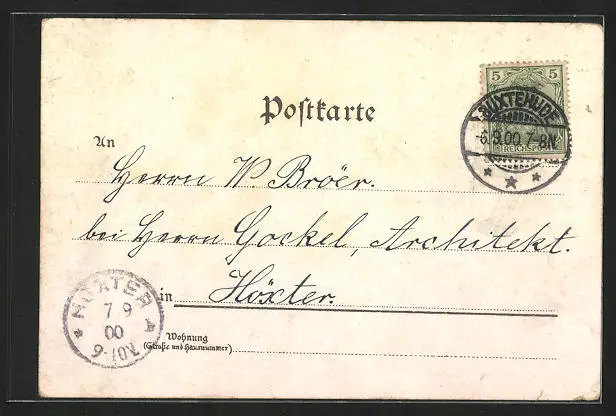 5 5
REICHSPOST
BUXTEHUDE
-6.9.00.7-8N.
Postkarte
An
Herrn W. Bröer.
bei Herrn Gockel, Architekt.
in Höxter.
HÖXTER
7 9
00
Wohnung
(Straße und Hausnummer)